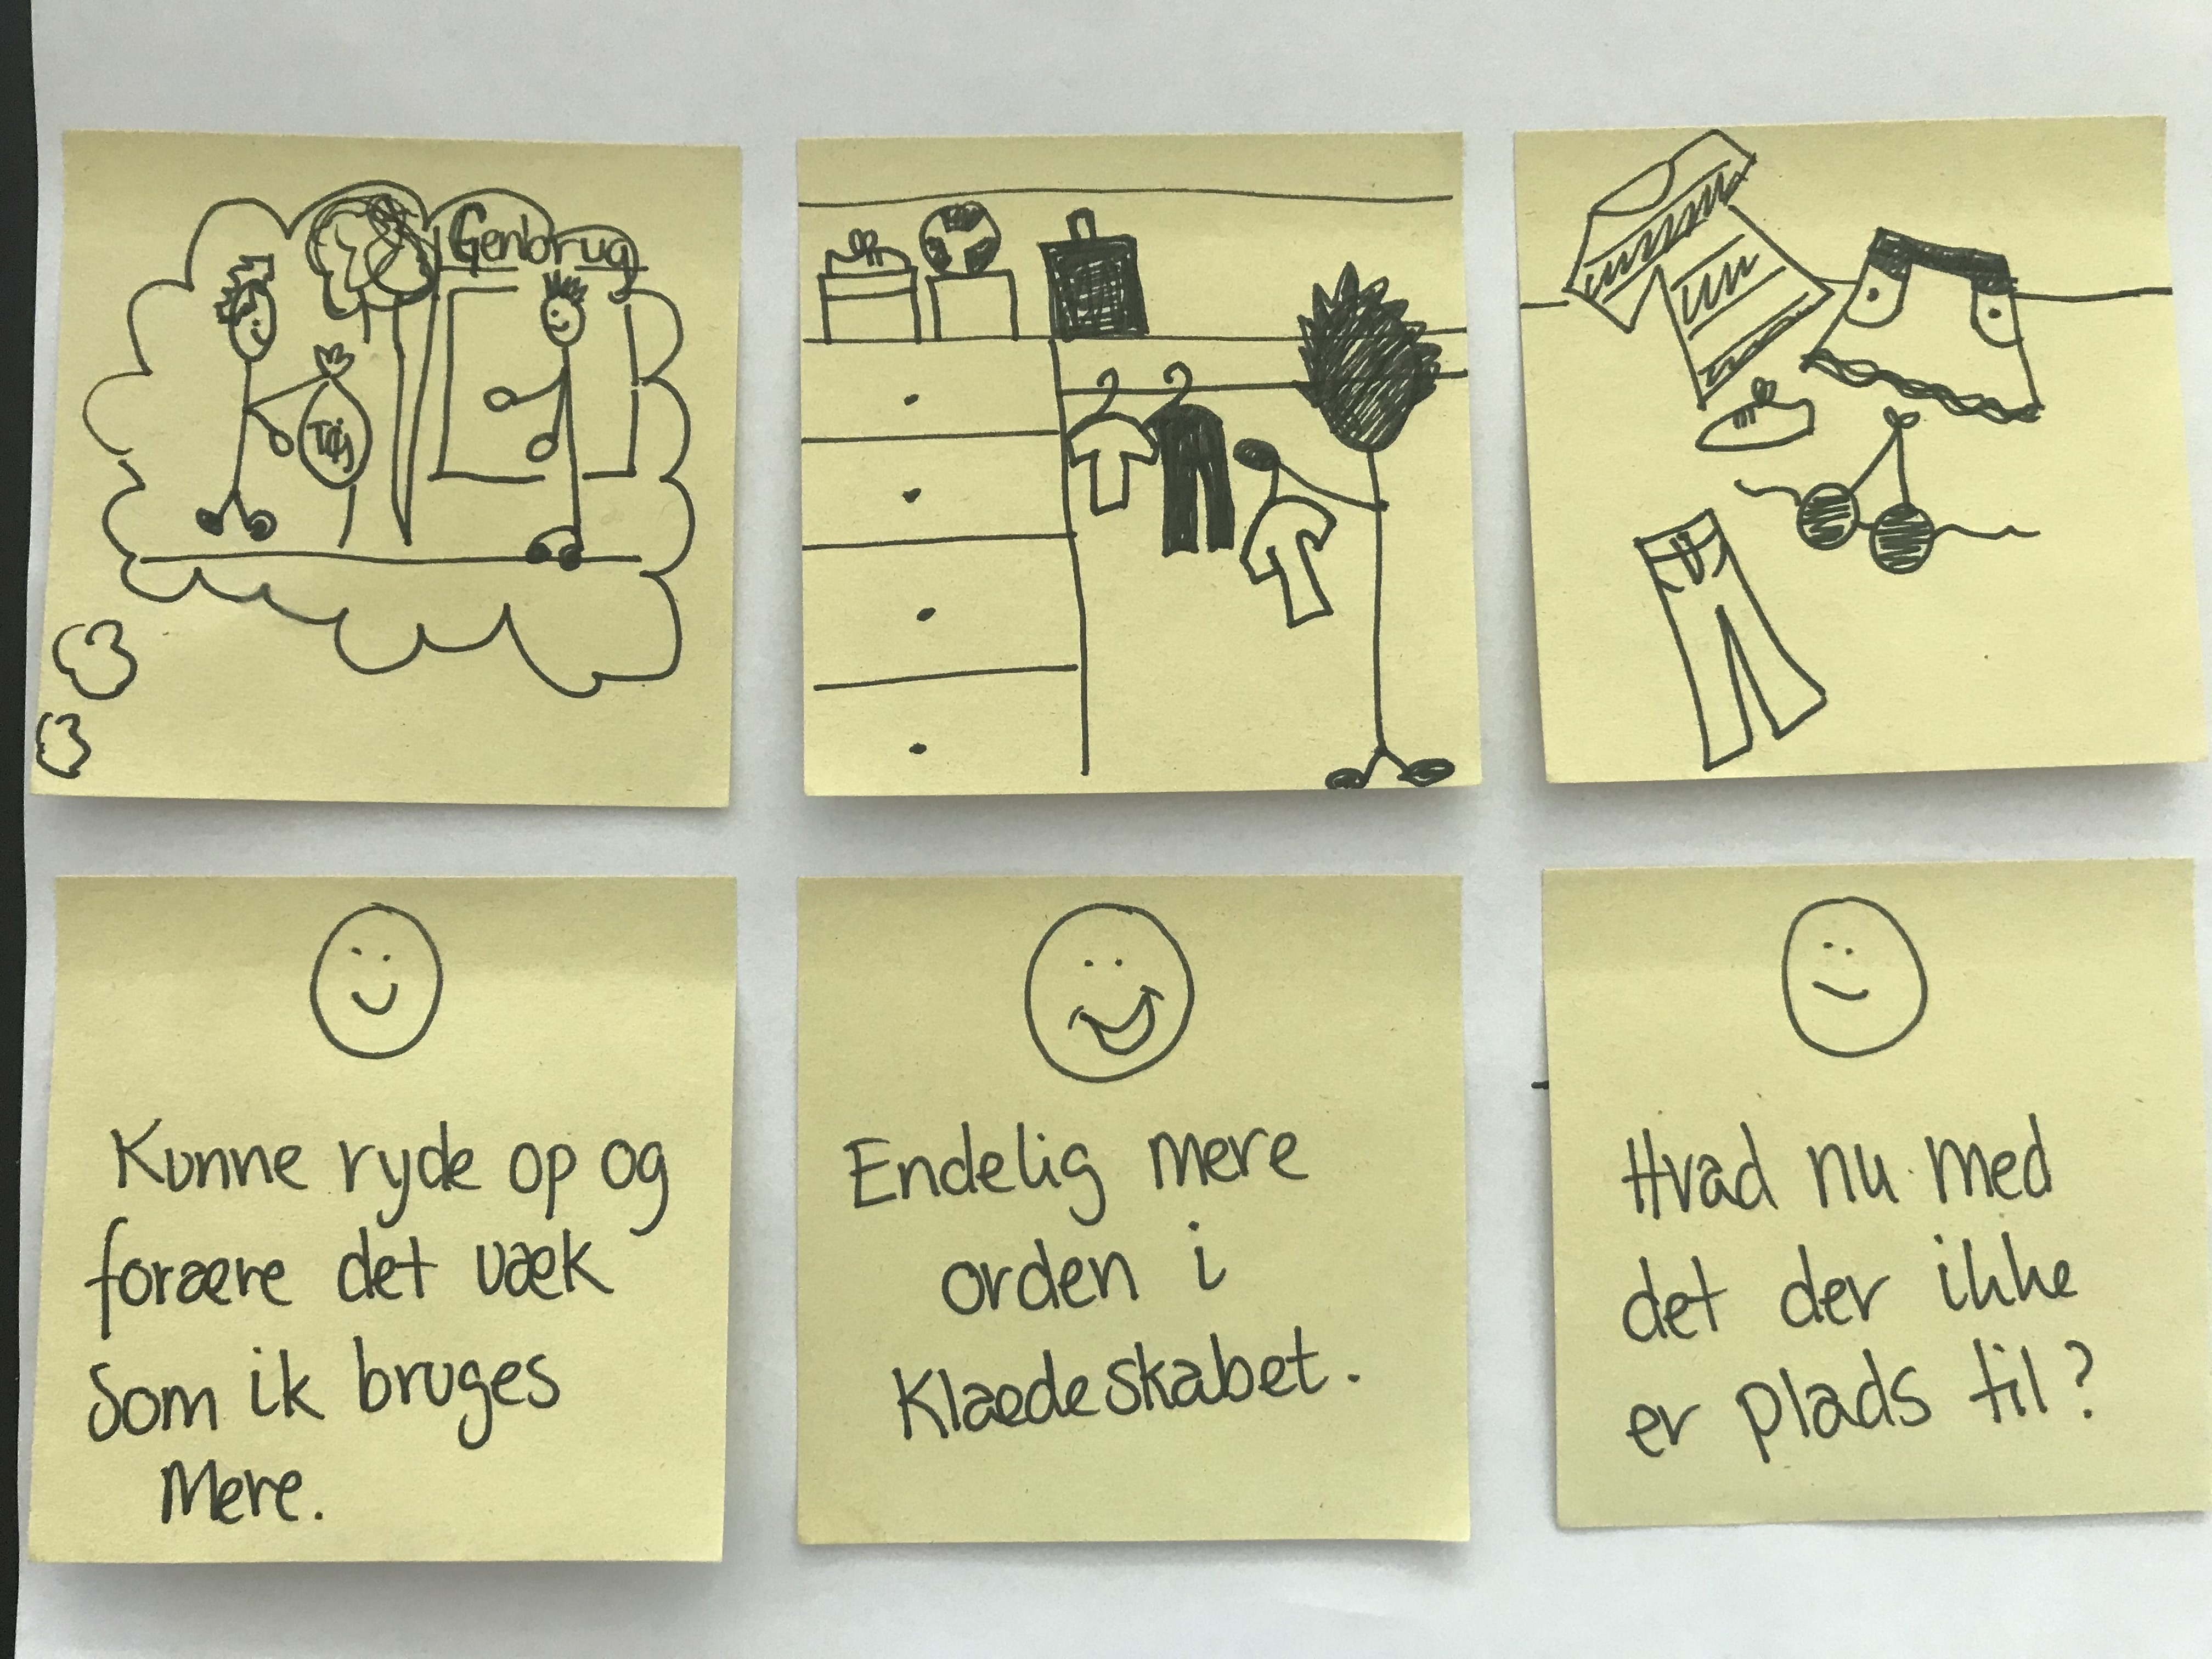 Genbrug
Tøj
Kunne ryde op og
forære det væk
Som ik bruges
Mere.
Endelig mere
orden i
Klædeskabet.
Hvad nu med
det der ikke
er plads til?